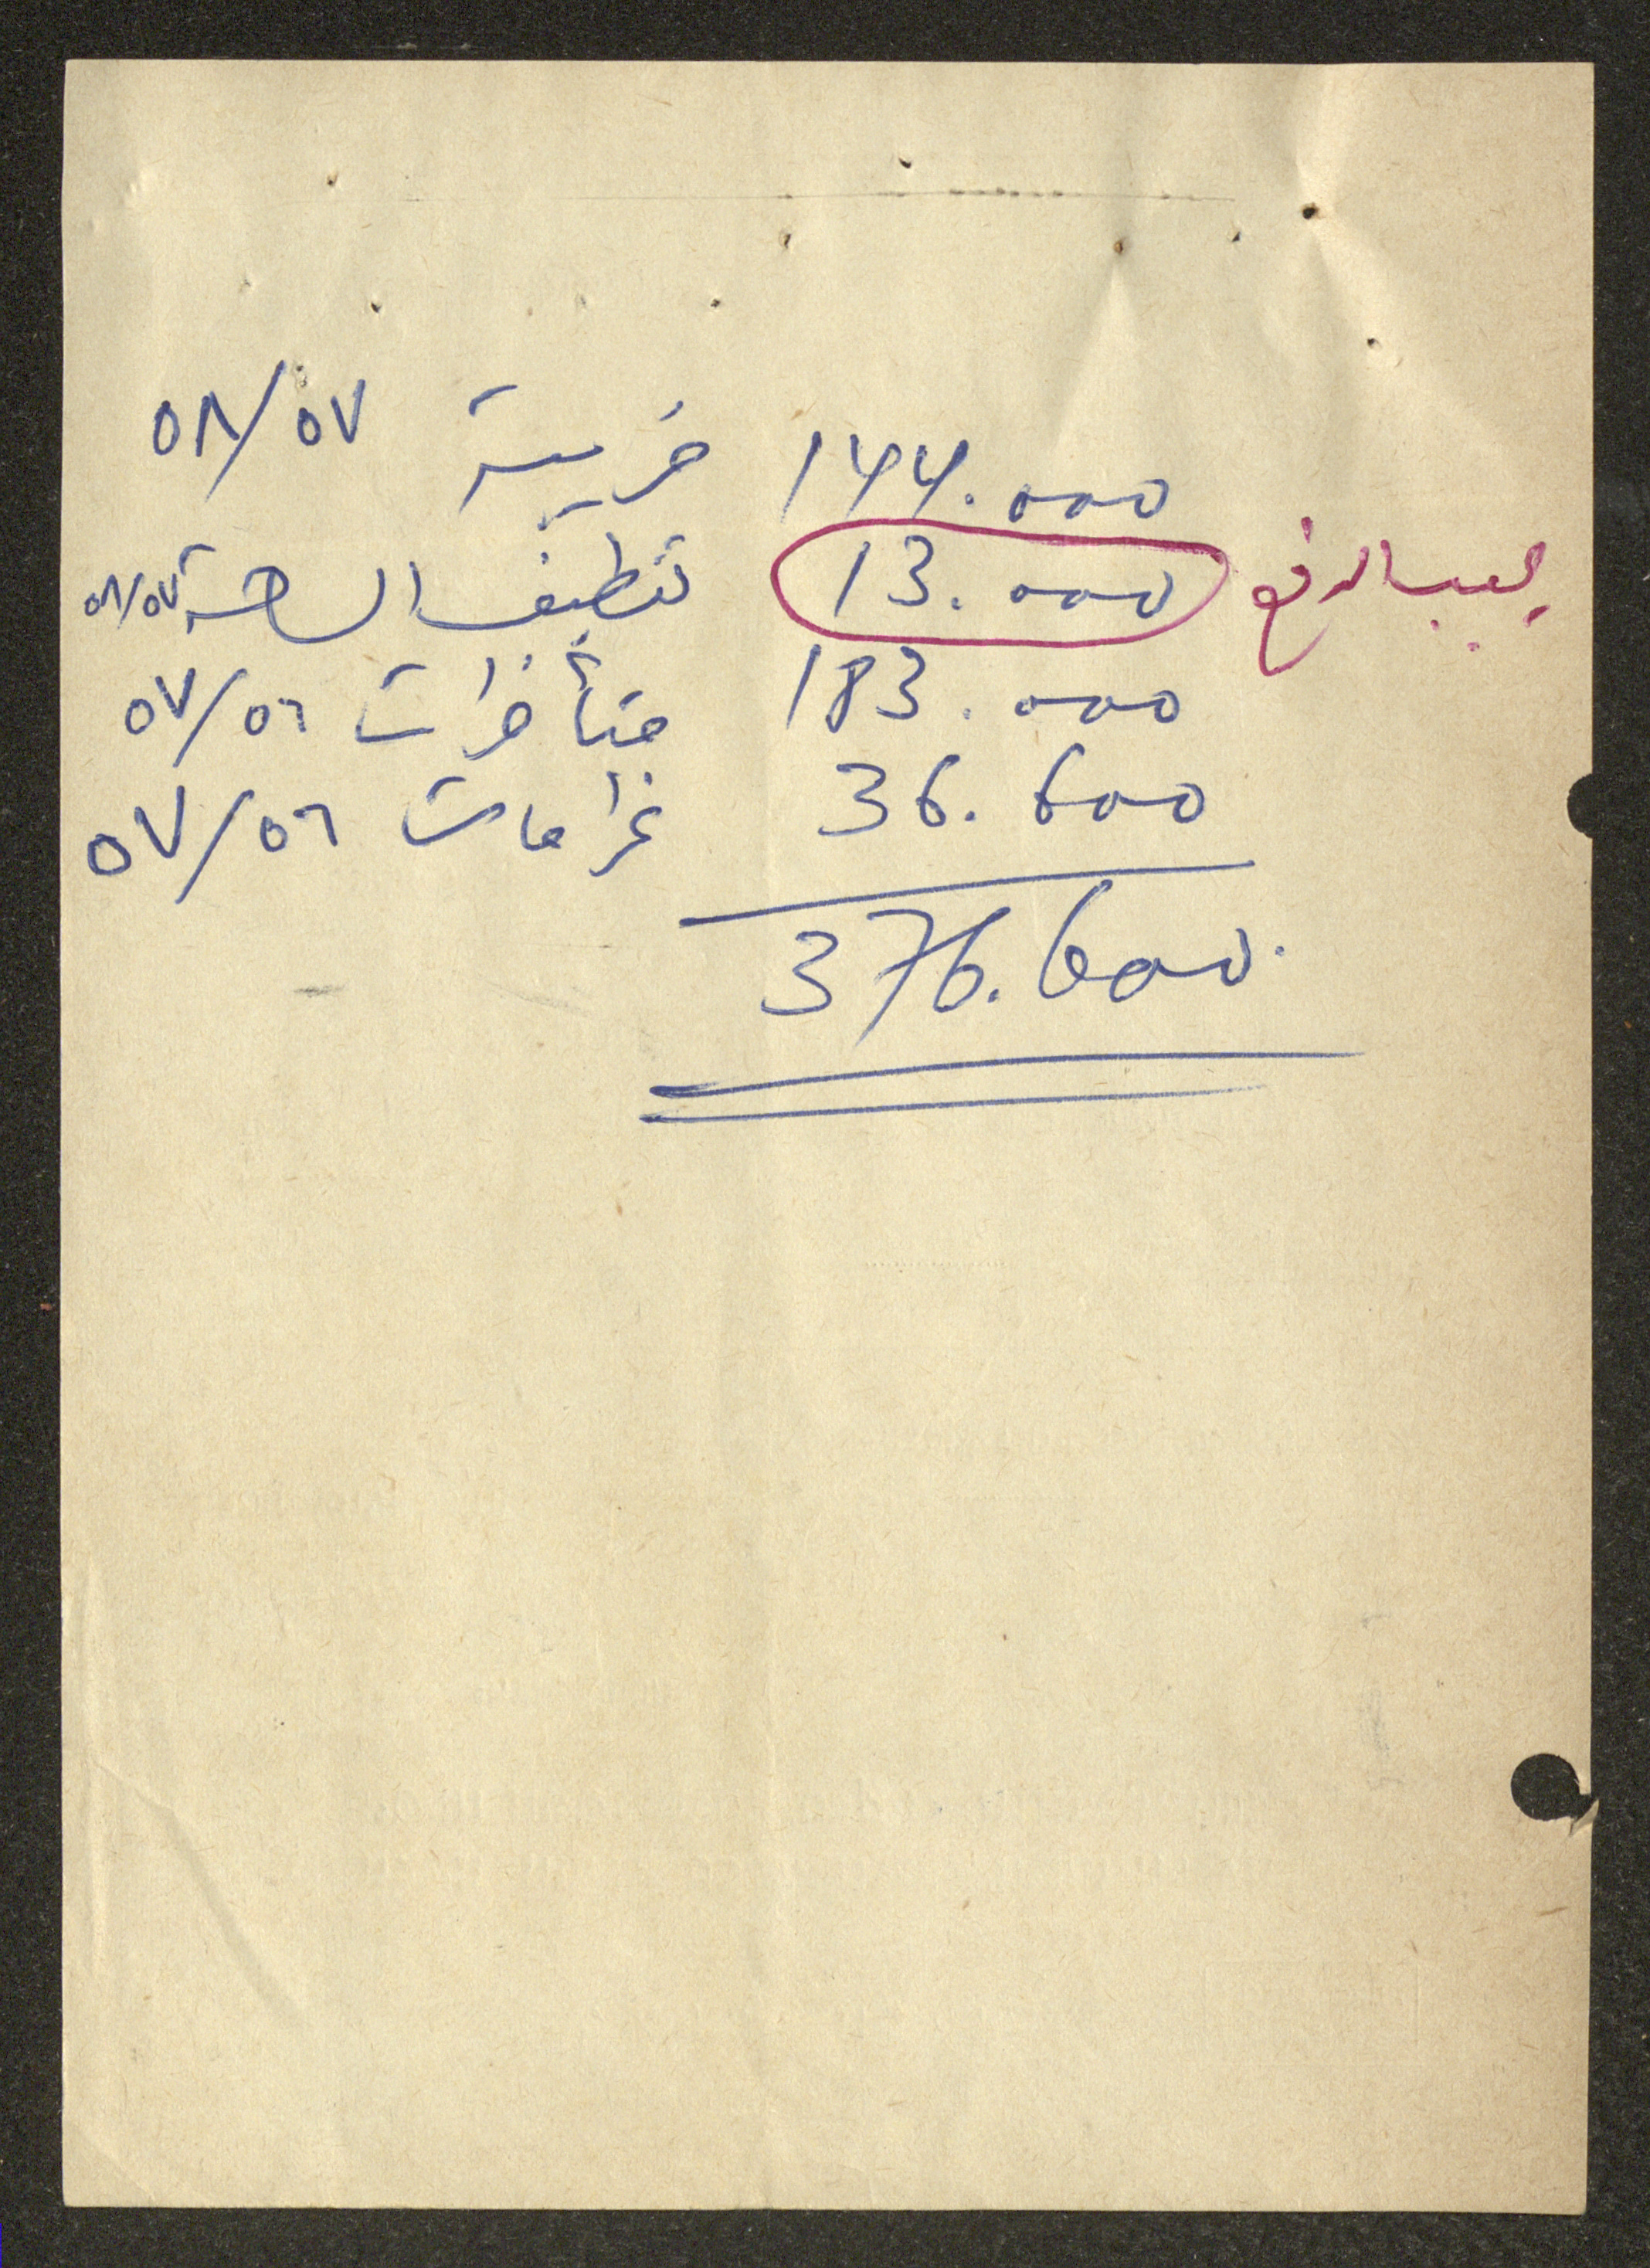 144.000 ضريبة ٥٧/٥٨
يجب الدفع 13.000 تنظيف الساحة ٥٧/٥٨
183.000 متأخرات ٥٦/٥٧
36.600 غرامات ٥٦/٥٧
376.600